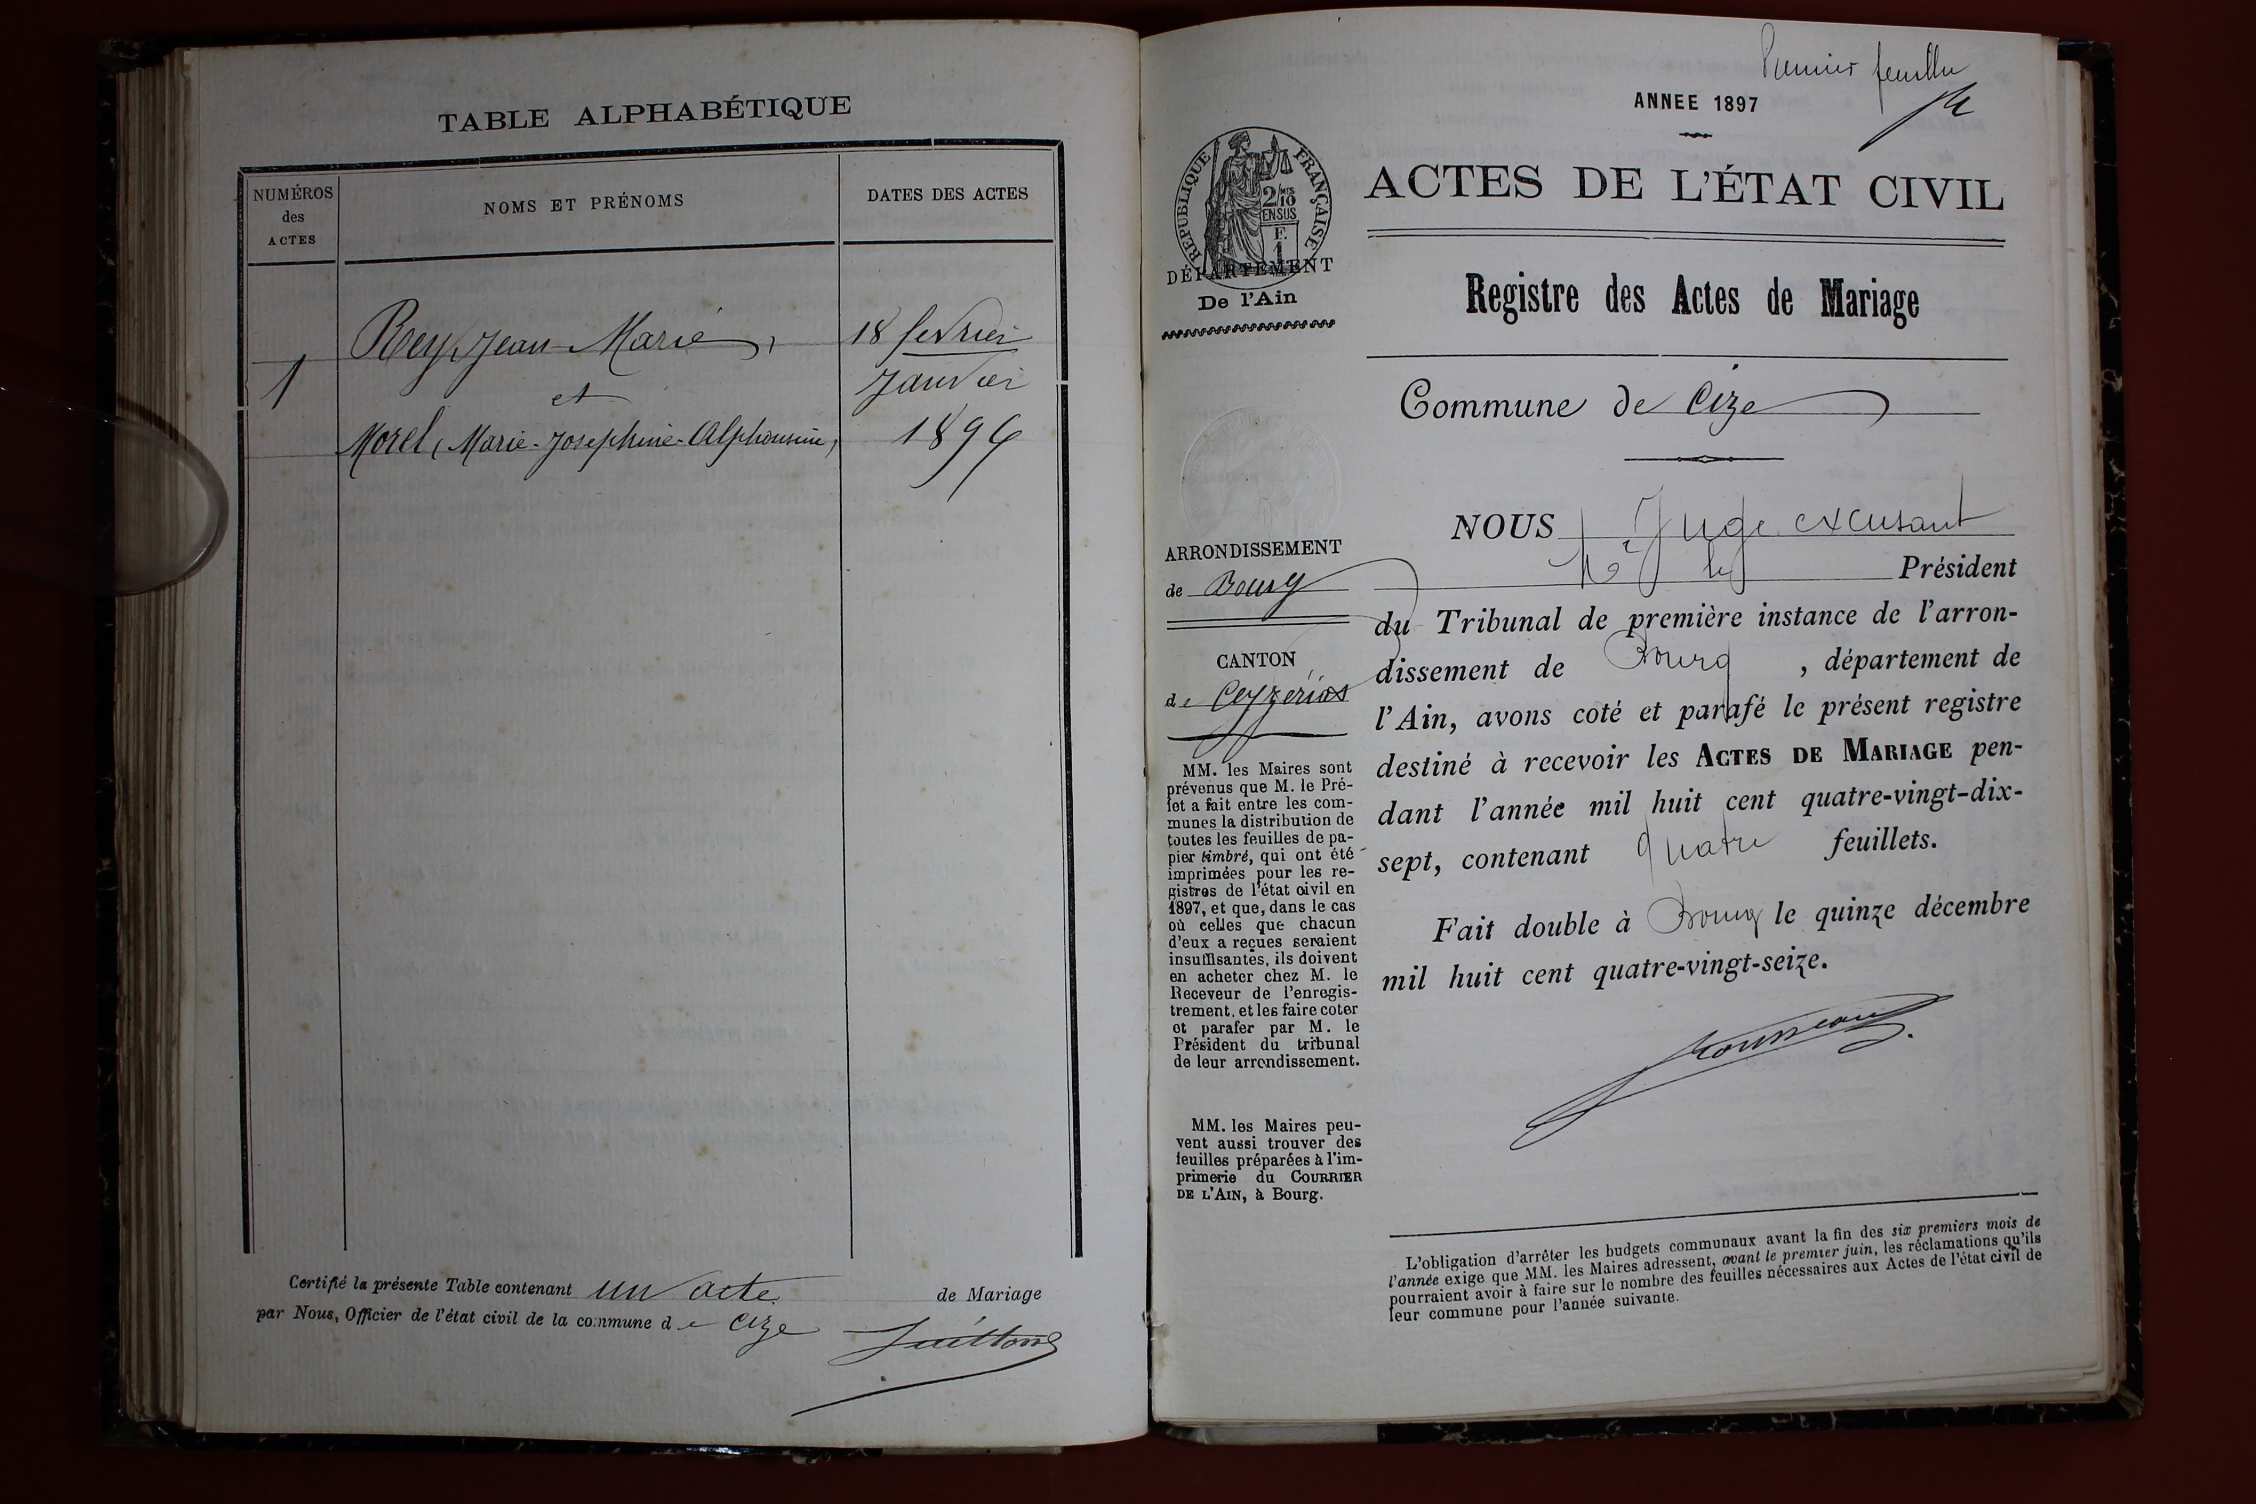 TABLE ALPHABÉTIQUE
NUMÉROS
des
ACTES
NOMS ET PRÉNOMS
DATES DES ACTES
Rey, Jean Marie,
18 fevrier
1
et
Janvier
Morel, Marie-Josephine-Alphonsine,
1896
Certifié la présente Table contenant un acte de Mariage
par Nous, Officier de l'état civil de la commune de Cize
Premier feuillet
ANNEE 1897
REPUBLIQUE FRANÇAISE
2/10
EN SUS
F.
1
DÉPARTEMENT
De l'Ain
ACTES DE L'ÉTAT CIVIL
Registre des Actes de Mariage
Commune de Cize
ARRONDISSEMENT
de Bourg
CANTON
de Ceyzérias
MM. les Maires sont
prévenus que M. le Pré-
fet a fait entre les com-
munes la distribution de
toutes les feuilles de pa-
pier timbré, qui ont été
imprimées pour les re-
gistres de l'état civil en
1897, et que, dans le cas
où celles que chacun
d'eux a reçues seraient
insuffisantes, ils doivent
en acheter chez M. le
Receveur de l'enregis-
trement, et les faire coter
et parafer par M. le
Président du tribunal
de leur arrondissement.
MM. les Maires peu-
vent aussi trouver des
feuilles préparées à l'im-
primerie du COURRIER
DE L'AIN, à Bourg.
NOUS Juge excusant
Mr le Président
du Tribunal de première instance de l'arron-
dissement de Bourg, département de
l'Ain, avons coté et parafé le présent registre
destiné à recevoir les ACTES DE MARIAGE pen-
dant l'année mil huit cent quatre-vingt-dix-
sept, contenant quatre feuillets.
Fait double à Bourg le quinze décembre
mil huit cent quatre-vingt-seize.
L'obligation d'arrêter les budgets communaux avant la fin des six premiers mois de
l'année exige que MM. les Maires adressent, avant le premier juin, les réclamations qu'ils
pourraient avoir à faire sur le nombre des feuilles nécessaires aux Actes de l'état civil de
leur commune pour l'année suivante.